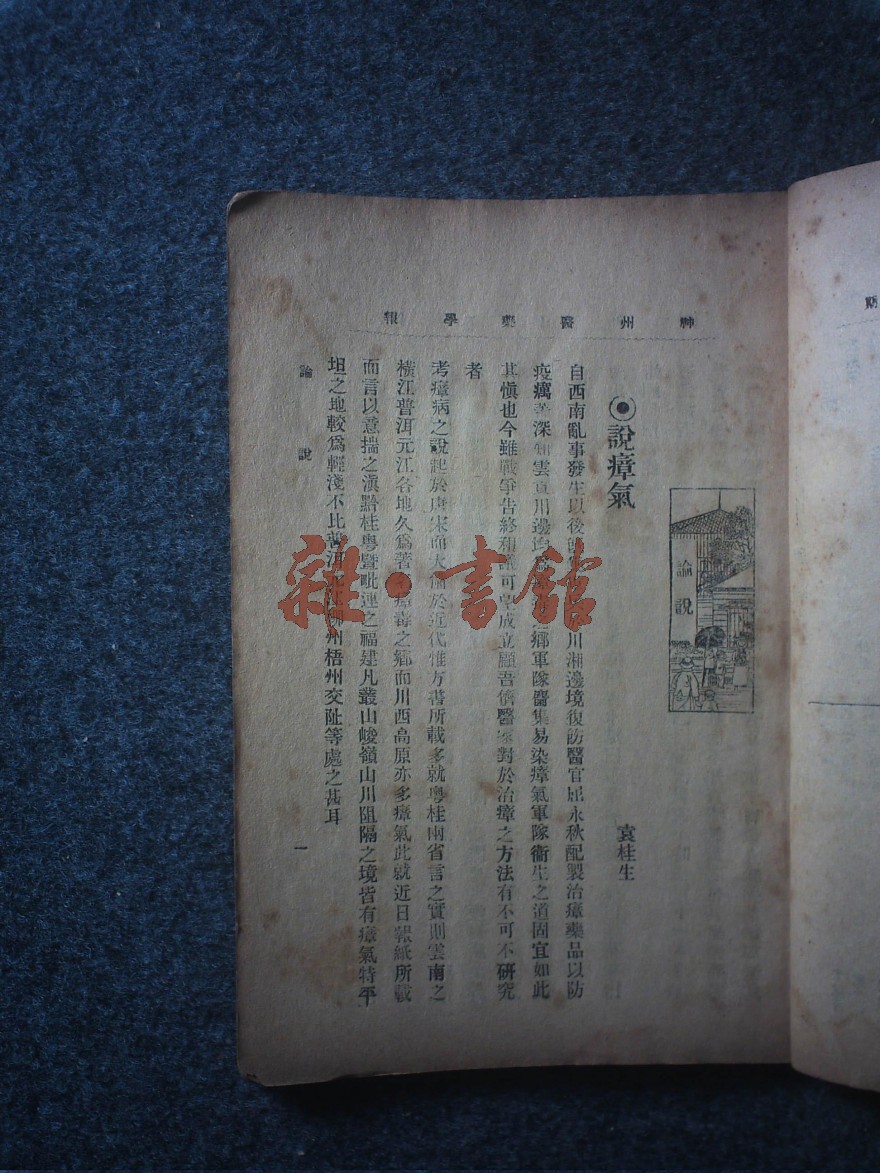 神州醫藥學報
論說
說瘴氣
袁桂生
自西南亂事發生以後 川湘邊境復飭醫官屈永秋配製治瘴藥品以防
疫癘 深 雲 川邊 鄉軍隊麕集易染瘴氣軍隊衞生之道固宜如此
其愼也今雖戰爭告終和 可 成立顧吾儕醫家對於治瘴之方法有不可不研究
者
考瘴病之說起於唐宋而大 於近代惟方書所載多就粤桂兩省言之實則雲南之
橫江普洱元江各地久爲著名瘴毒之鄉而川西高原亦多瘴氣此就近日報紙所載
而言以意揣之滇黔桂粤暨毗連之福建凡叢山峻嶺山川阻隔之境皆有瘴氣特平
坦之地較爲輕淺不比普洱 柳州梧州交趾等處之甚耳
論說
一
期
雜·書館